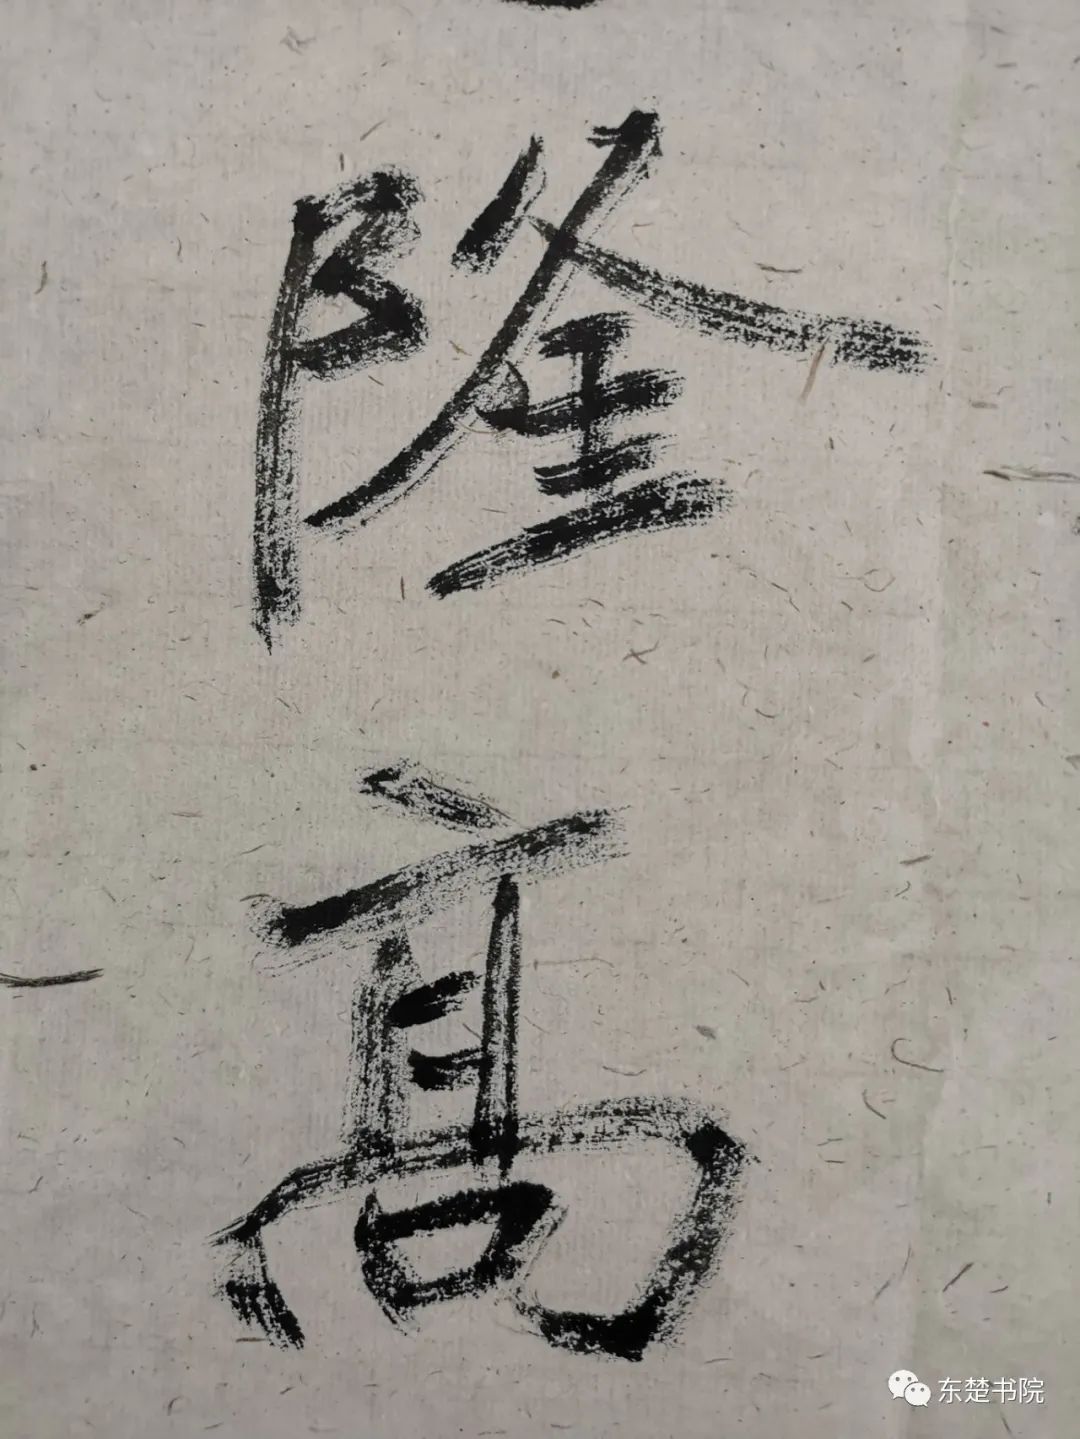 隆
髙
东楚书院